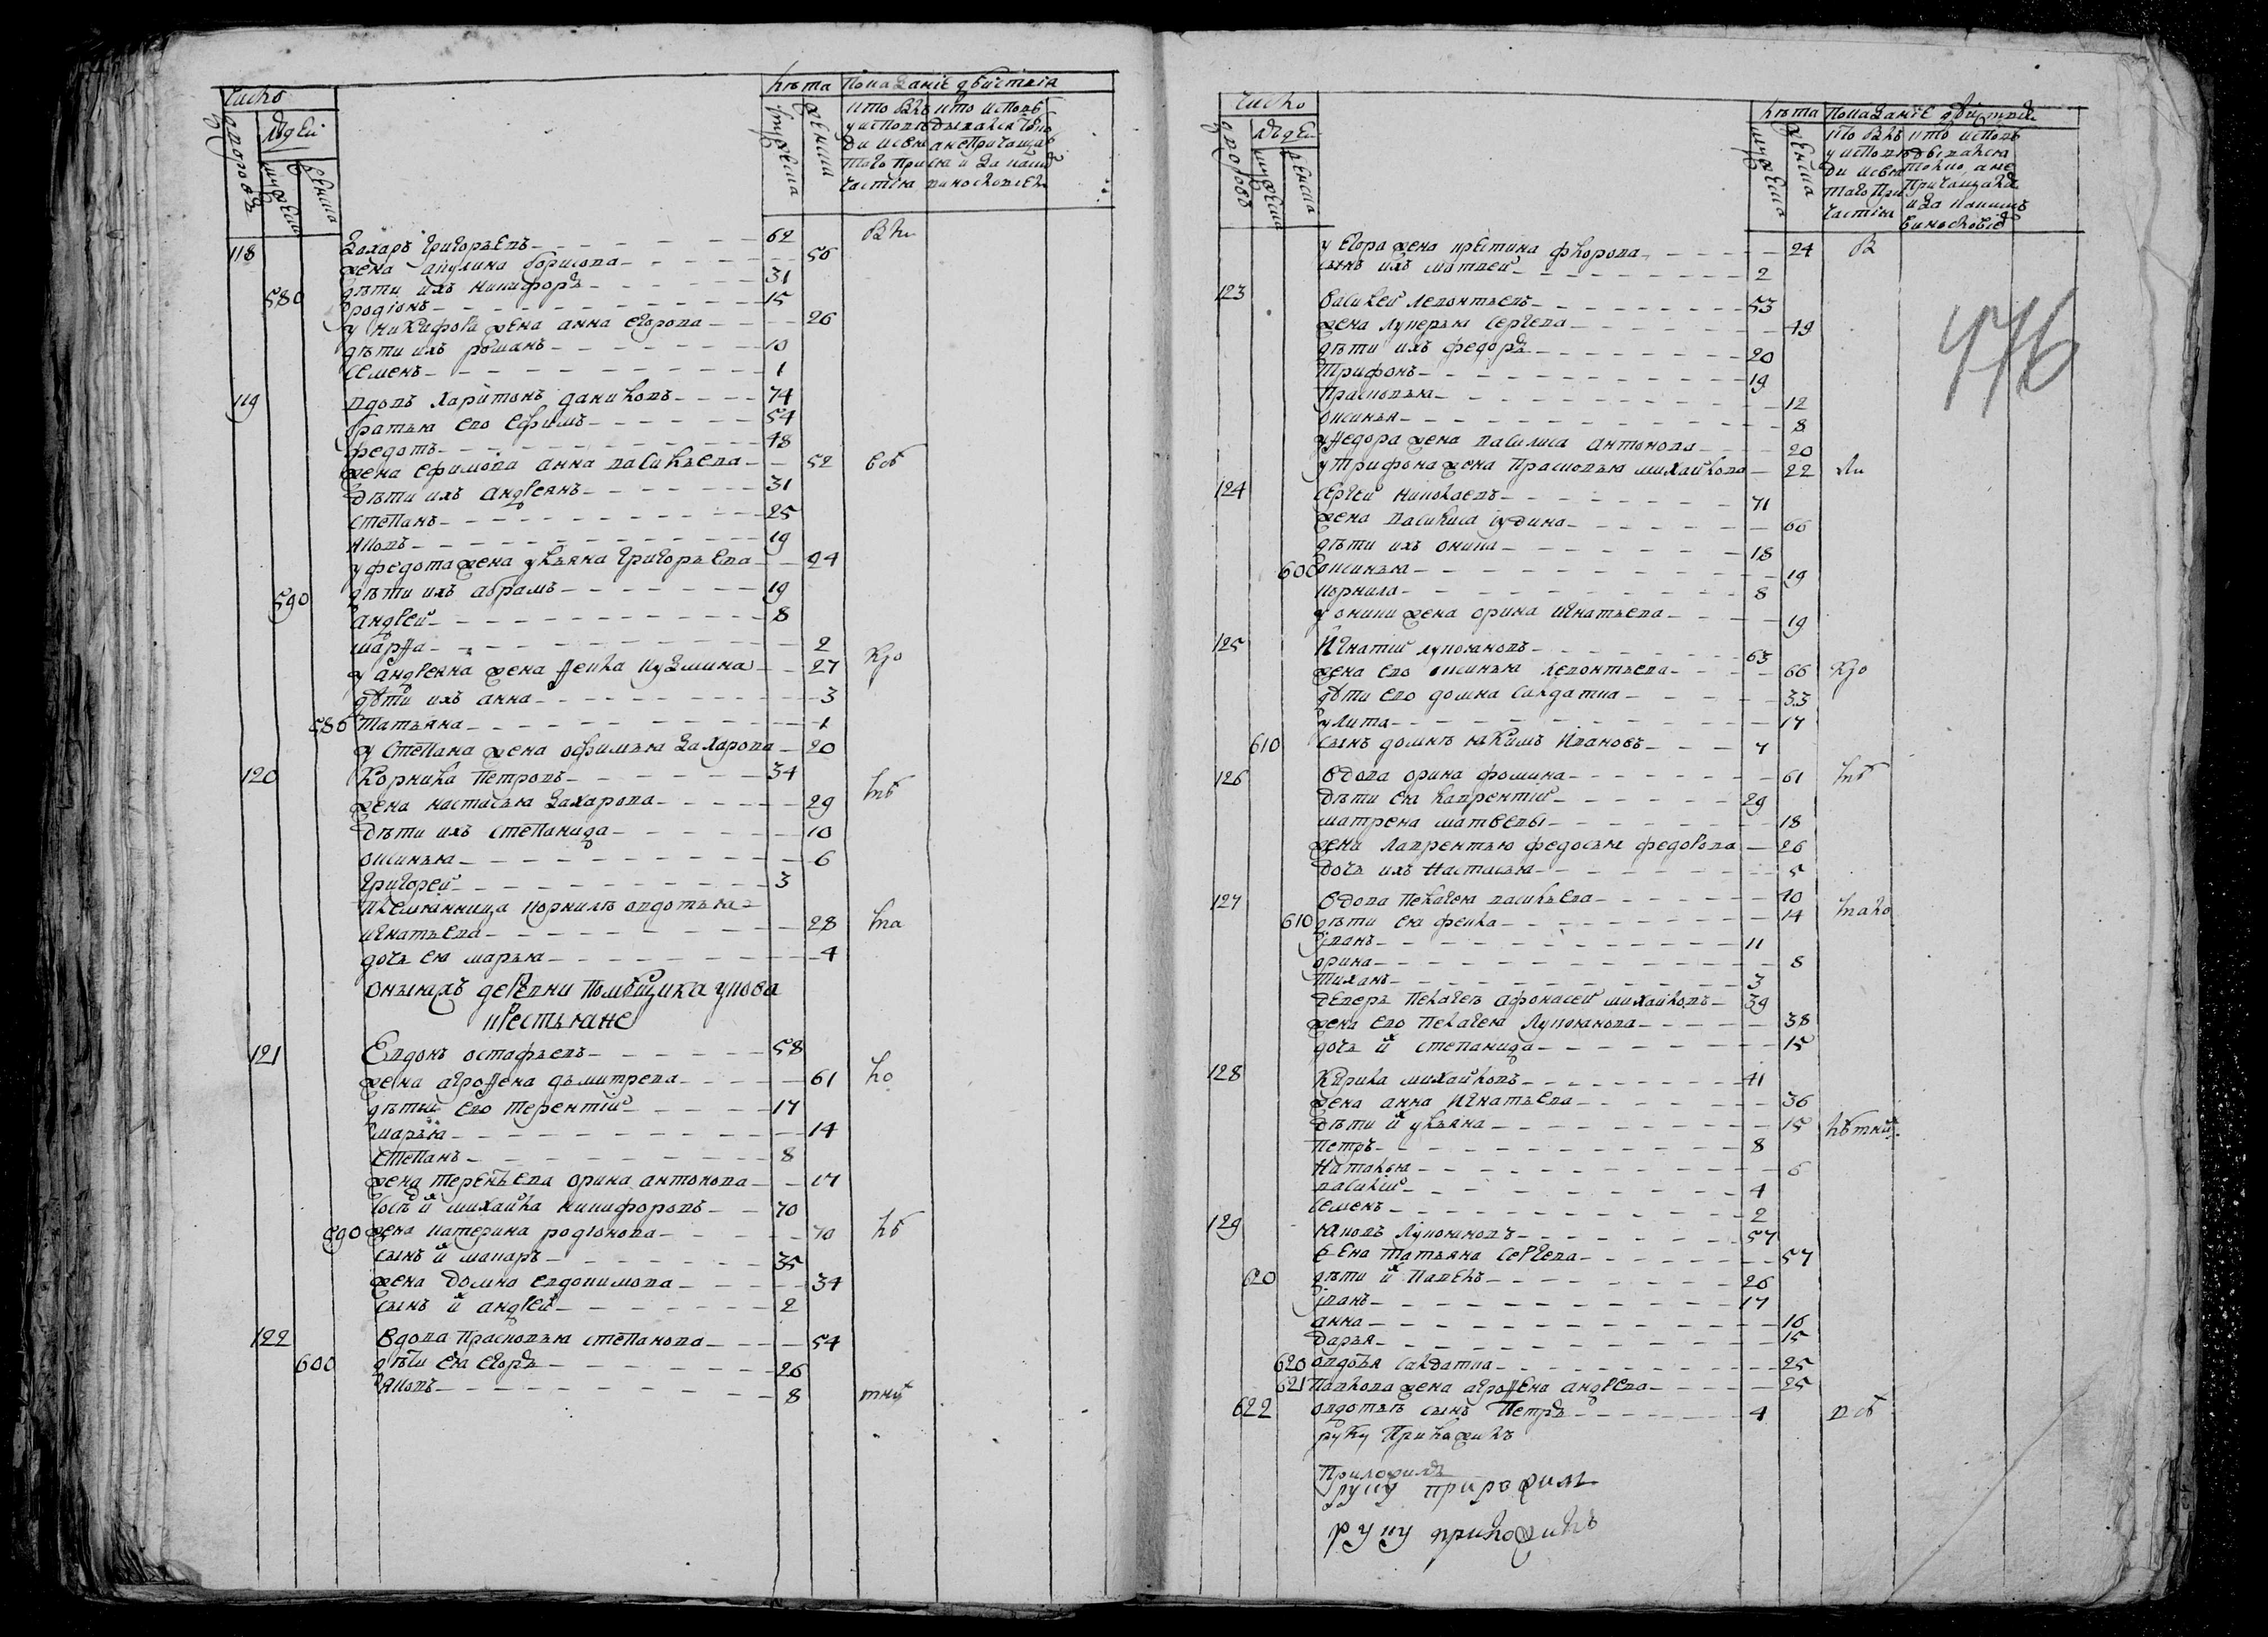 число
дворовъ
людей
мужеска
женска
лѣта
мужеска
женска
показаніе дѣйствія
118 Захаръ Григорьевъ 62
жена Акулина Борисова 56
дѣти ихъ Никифоръ 31
580 Родіонъ 15
у Никифора жена Анна Егорова 26
дѣти ихъ Романъ 10
Семенъ 1
119 вдовъ Харитонъ Даниловъ 74
братья ево Ефимъ 54
Федотъ 48
жена Ефимова Анна Васильева 52
дѣти ихъ Андреянъ 31
Степанъ 25
Яковъ 19
у Федота жена Ульяна Григорьева 44
590 дѣти ихъ Абрамъ 19
Андрей 8
Марфа 2
у Андреяна жена Фекла Кузмина 27
дѣти ихъ Анна 3
586 Татьяна 1
у Степана жена Офимья Захарова 20
120 Корнила Петровъ 34
жена Настасья Захарова 29
дѣти ихъ Степанида 10
Оксинья 6
Григорей 3
племянница Корнилѣ Овдотья
Игнатьева 28
дочь ея Марья 4
деревни помѣщика
крестьяне
121 Евдокъ Остафьевъ 58
жена Агрофена Дьмитрева 61
дѣти ево Терентій 17
Марья 14
Степанъ 8
жена Терентьева Орина Антонова 17
Михайла Никифоровъ 70
590 жена Катерина Родіонова 70
сынъ и Макаръ 35
жена Домна Евдокимова 34
сынъ и Андрей 2
122 вдова Прасковья Степанова 54
600 дѣти ея Егоръ 26
Яковъ 8
476
число
дворовъ
людей
мужеска
женска
лѣта
мужеска
женска
показаніе дѣйствия
у Егора жена Крестина Флорова 24
сынъ ихъ Матвей 2
123 Василей Левонтьевъ 53
жена Лукерья Сергева 49
дѣти ихъ Федоръ 20
Трифонъ 19
Прасковья 12
Оксинья 8
у Федора жена Василиса Антонова 20
у Трифона жена Прасковья Михайлова 22
124 Сергей Николаевъ 71
жена Василиса Іудина 66
дѣти ихъ Оника 18
600 Оксинья 19
Корнила 8
у Оники жена Орина Игнатьева 19
125 Игнатій Лукояновъ 63
жена ево Оксинья Левонтьева 66
дѣти ево Домна салдатка 33
Улита 17
610 сынъ Домнѣ Якимъ Ивановъ 7
126 вдова Орина Фомина 61
дѣти ея Лаврентій 29
Матрена Матвевы 18
жена Лаврентью Федосья Федорова 26
дочь ихъ Настасья 5
127 вдова Пелагея Васильева 40
610 дѣти ея Фекла 14
Іванъ 11
Орина 8
Тиханъ 3
деверь Пелагеѣ Афонасей Михайловъ 39
жена ево Пелагея Лукоянова 38
дочь и Степанида 15
128 Кирила Михайловъ 41
жена Анна Игнатьева 36
дѣти и Ульяна 15
Петръ 8
Наталья 6
Василій 4
Семенъ 2
129 Яковъ Лукояновъ 57
жена Татьяна Сергева 57
620 дѣти и Павелъ 26
Іванъ 17
Анна 16
Дарья 15
620 Овдотья салдатка 25
621 Павлова жена Агрофена Андрева 25
622 Овдотьѣ сынъ Петръ 4
руку приложилъ
приложилъ
руку приложилъ
руку приложилъ